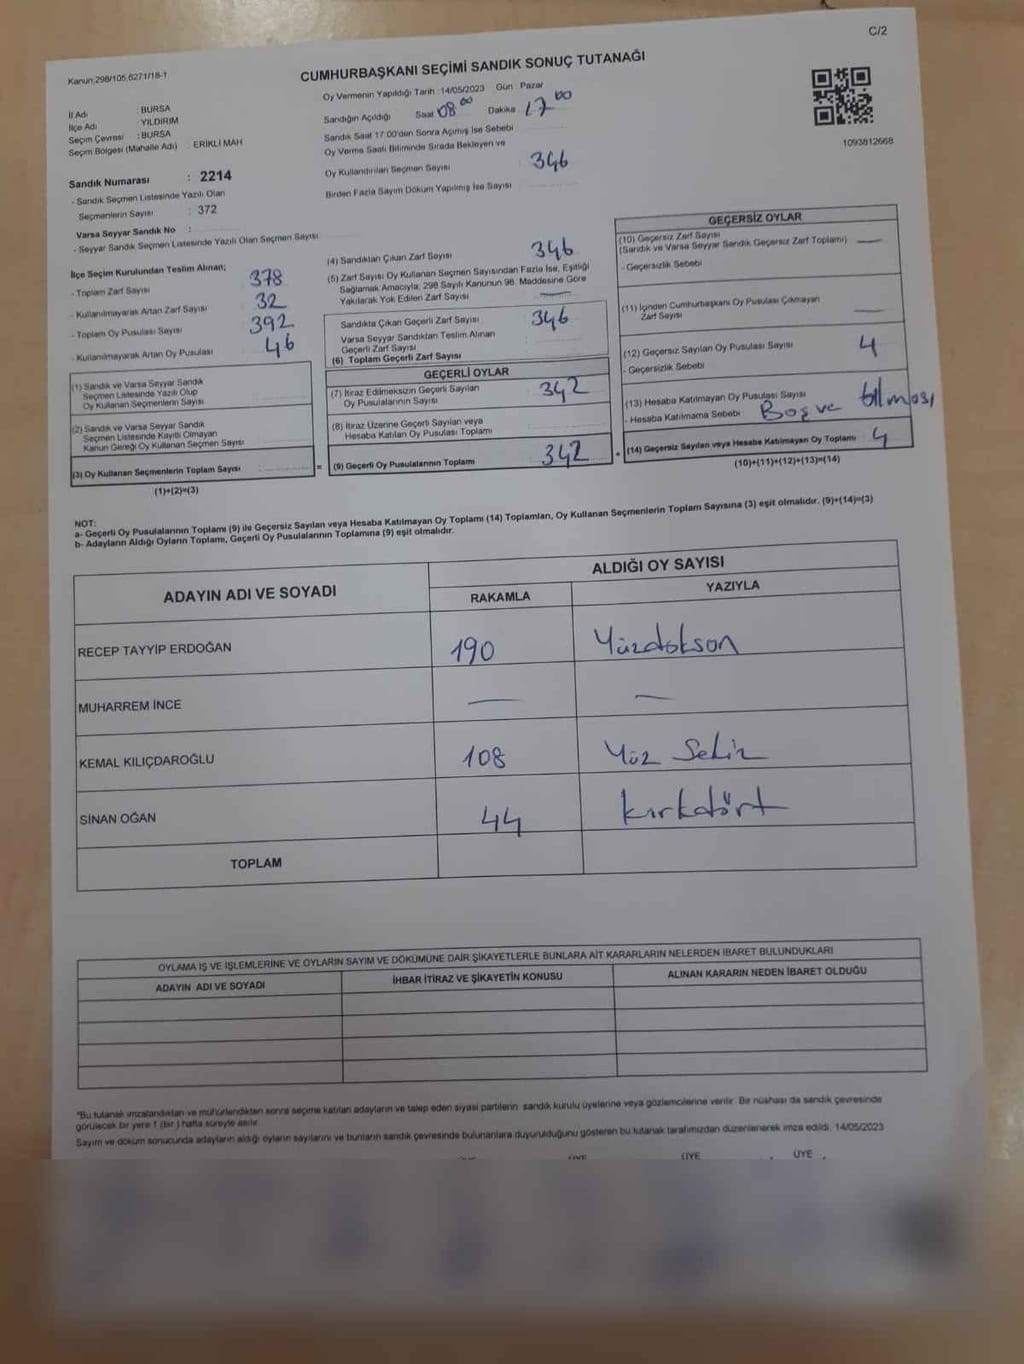 C/2
Kanun:298/105,6271/18-1
CUMHURBAŞKANI SEÇİMİ SANDIK SONUÇ TUTANAĞI
Oy Vermenin Yapıldığı Tarih : 14/05/2023 Gün : Pazar
İl Adı : BURSA
İlçe Adı : YILDIRIM
Seçim Çevresi : BURSA
Seçim Bölgesi (Mahalle Adı) : ERİKLİ MAH
Sandık Numarası : 2214
- Sandık Seçmen Listesinde Yazılı Olan
Seçmenlerin Sayısı : 372
Varsa Seyyar Sandık No :
- Seyyar Sandık Seçmen Listesinde Yazılı Olan Seçmen Sayısı:
Sandığın Açıldığı Saat 08 00 Dakika 17 00
Sandık Saat 17.00'den Sonra Açımış İse Sebebi
Oy Verme Saati Bitiminde Sırada Bekleyen ve
Oy Kullandırılan Seçmen Sayısı 346
Birden Fazla Sayım Döküm Yapılmış İse Sayısı
1093812668
İlçe Seçim Kurulundan Teslim Alınan;
- Toplam Zarf Sayısı 378
- Kullanılmayarak Artan Zarf Sayısı 32
- Toplam Oy Pusulası Sayısı 392
- Kullanılmayarak Artan Oy Pusulası 46
(1) Sandık ve Varsa Seyyar Sandık
Seçmen Listesinde Yazılı Olup
Oy Kullanan Seçmenlerin Sayısı
(2) Sandık ve Varsa Seyyar Sandık
Seçmen Listesinde Kayıtlı Olmayan
Kanun Gereği Oy Kullanan Seçmen Sayısı
(3) Oy Kullanan Seçmenlerin Toplam Sayısı =
(1)+(2)=(3)
(4) Sandıktan Çıkan Zarf Sayısı 346
(5) Zarf Sayısı Oy Kullanan Seçmen Sayısından Fazla İse, Eşitliği
Sağlamak Amacıyla; 298 Sayılı Kanunun 98. Maddesine Göre
Yakılarak Yok Edilen Zarf Sayısı —
Sandıkta Çıkan Geçerli Zarf Sayısı 346
Varsa Seyyar Sandıktan Teslim Alınan
Geçerli Zarf Sayısı
(6) Toplam Geçerli Zarf Sayısı
GEÇERLİ OYLAR
(7) İtiraz Edilmeksizin Geçerli Sayılan
Oy Pusulalarının Sayısı 342
(8) İtiraz Üzerine Geçerli Sayılan veya
Hesaba Katılan Oy Pusulası Toplamı
(9) Geçerli Oy Pusulalarının Toplamı 342 +
GEÇERSİZ OYLAR
(10) Geçersiz Zarf Sayısı
(Sandık ve Varsa Seyyar Sandık Geçersiz Zarf Toplamı) —
- Geçersizlik Sebebi
(11) İçinden Cumhurbaşkanı Oy Pusulası Çıkmayan
Zarf Sayısı —
(12) Geçersiz Sayılan Oy Pusulası Sayısı 4
- Geçersizlik Sebebi
(13) Hesaba Katılmayan Oy Pusulası Sayısı
- Hesaba Katılmama Sebebi Boş ve
(14) Geçersiz Sayılan veya Hesaba Katılmayan Oy Toplamı 4
(10)+(11)+(12)+(13)=(14)
NOT:
a- Geçerli Oy Pusulalarının Toplamı (9) ile Geçersiz Sayılan veya Hesaba Katılmayan Oy Toplamı (14) Toplamları, Oy Kullanan Seçmenlerin Toplam Sayısına (3) eşit olmalıdır. (9)+(14)=(3)
b- Adayların Aldığı Oyların Toplamı, Geçerli Oy Pusulalarının Toplamına (9) eşit olmalıdır.
ADAYIN ADI VE SOYADI
ALDIĞI OY SAYISI
RAKAMLA YAZIYLA
RECEP TAYYİP ERDOĞAN 190 Yüzdokson
MUHARREM İNCE — —
KEMAL KILIÇDAROĞLU 108 Yüz Sekiz
SİNAN OĞAN 44 kırkdört
TOPLAM
OYLAMA İŞ VE İŞLEMLERİNE VE OYLARIN SAYIM VE DÖKÜMÜNE DAİR ŞİKAYETLERLE BUNLARA AİT KARARLARIN NELERDEN İBARET BULUNDUKLARI
ADAYIN ADI VE SOYADI İHBAR İTİRAZ VE ŞİKAYETİN KONUSU ALINAN KARARIN NEDEN İBARET OLDUĞU
*Bu tutanak imzalandıktan ve mühürlendikten sonra seçime katılan adayların ve talep eden siyasi partilerin sandık kurulu üyelerine veya gözlemcilerine verilir. Bir nüshası da sandık çevresinde
görülecek bir yere 1 (bir ) hafta süreyle asılır.
Sayım ve döküm sonucunda adayların aldığı oyların sayılarını ve bunların sandık çevresinde bulunanlara duyurulduğunu gösteren bu tutanak tarafımızdan düzenlenerek imza edildi. 14/05/2023
ÜYE ÜYE ÜYE